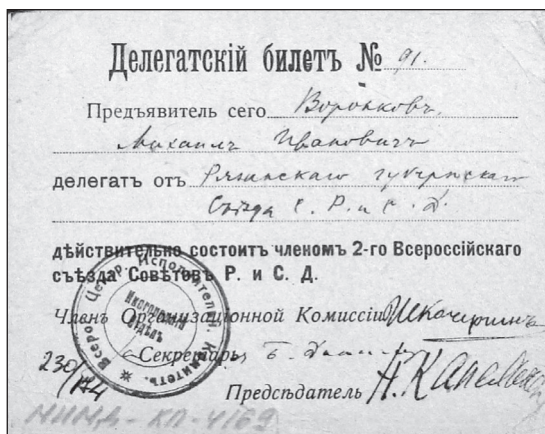 Делегатскій билетъ № 91.
Предъявитель сего Воронковъ
Михаилъ Ивановичъ
делегатъ отъ Рязанскаго губернскаго
Съѣзда С. Р. и С. Д.
дѣйствительно состоитъ членомъ 2-го Всероссійскаго
съѣзда Совѣтовъ Р. и С. Д.
Членъ Организаціонной Комиссіи
Секретарь
Предсѣдатель
Всеросс. Центр. Исполнительн. Комитетъ.
Иногородній
Отдѣлъ
МИМД-КП-4169